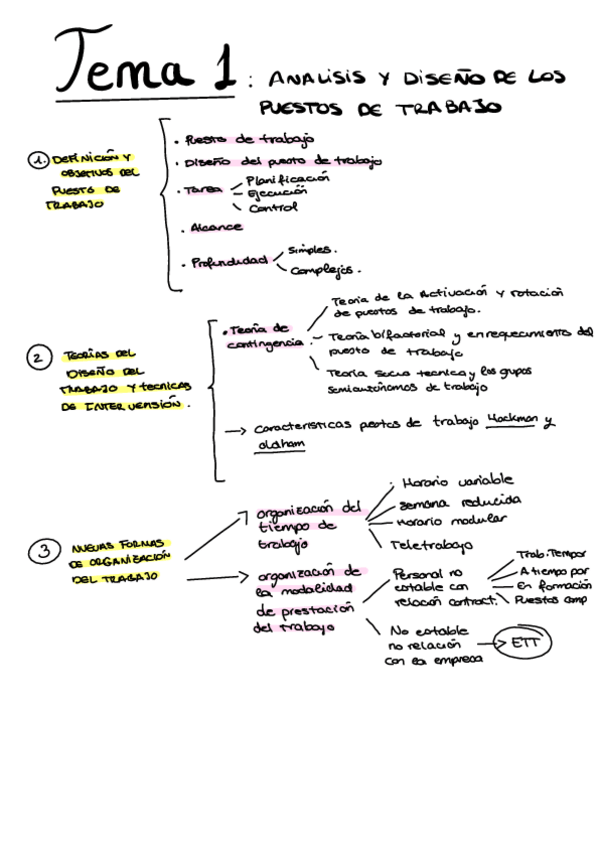 Tema 1 : ANALISIS Y DISEÑO DE LOS
PUESTOS DE TRABAJO
1. DEFINICIÓN Y
OBJETIVOS DEL
PUESTO DE
TRABAJO
· Puesto de trabajo
· Diseño del puesto de trabajo
· Tarea
Planificación
Ejecución
Control
· Alcance
· Profundidad
Simples.
Complejos.
2 TEORÍAS DEL
DISEÑO DEL
TRABAJO Y TECNICAS
DE INTERVENSIÓN.
· Teoría de
contingencia
Teoria de la Activación y rotación
de puestos de trabajo.
Teoría bifactorial y enrequecimiento del
puesto de trabajo
Teoría socio tecnica y los grupos
semiautónomos de trabajo
→ Caracteristicas peotos de trabajo Hackman y
oldham
3 NUEVAS FORMAS
DE ORGANIZACIÓN
DEL TRABAJO
organización del
tiempo de
trabajo
· Horario variable
semana reducida
Horario modular
Teletrabajo
organización de
la modalidad
de prestación
del trabajo
Personal no
estable con
relación contract.
Trab. Tempor
A tiempo por
En formación
Puestos comp
No estable
no relación
con la empresa
ETT